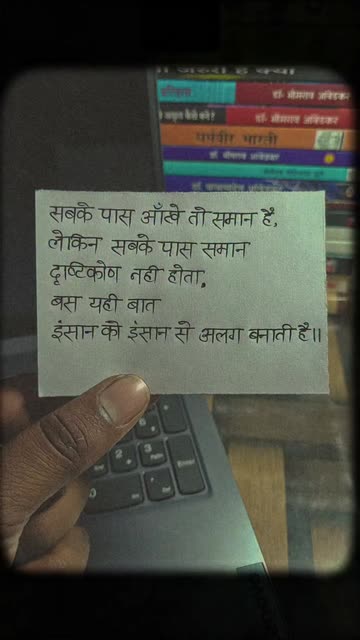 डॉ- भीमराव आंबेडकर
डॉ- भीमराव आंबेडकर
धर्मवीर भारती
डॉ. भीमराव आंबेडकर
सबके पास आँखे तो समान है,
लेकिन सबके पास समान
दृष्टिकोण नही होता,
बस यही बात
इंसान को इंसान से अलग बनाती है॥
Enter